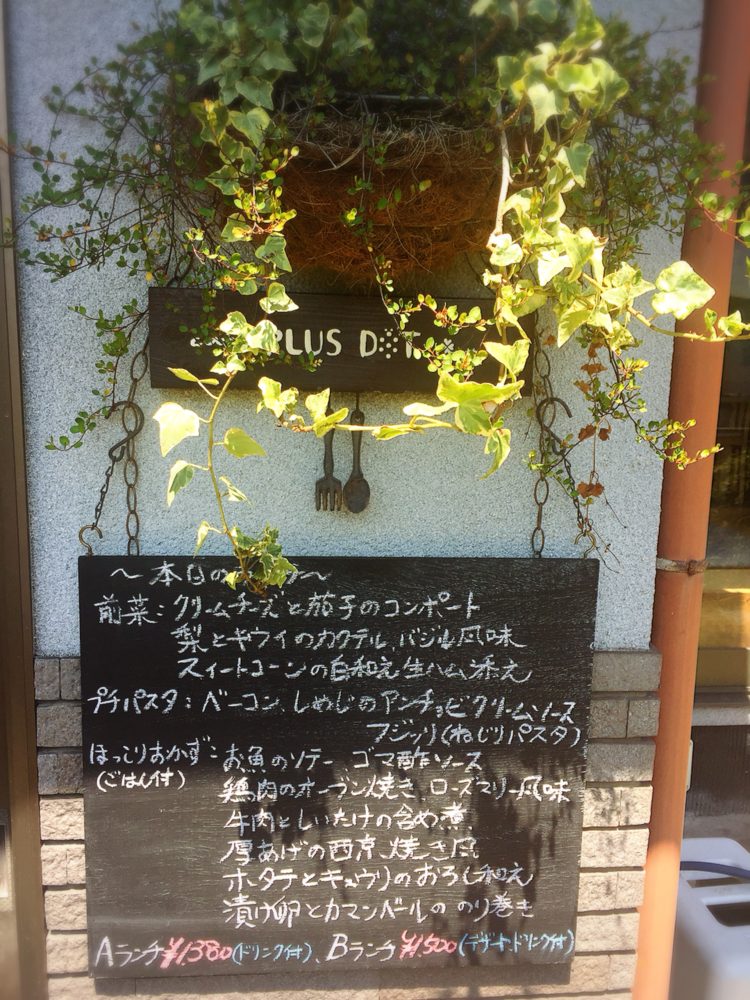 PLUS DOT.
～本日の
前菜：クリームチーズと茄子のコンポート
梨とキウイのカクテル、バジル風味
スィートコーンの白和え生ハム添え
プチパスタ：ベーコン、しめじのアンチョビクリームソース
フジッリ(ねじりパスタ)
ほっこりおかず：お魚のソテー ゴマ酢ソース
(ごはん付) 鶏肉のオーブン焼き、ローズマリー風味
牛肉としいたけの含め煮
厚あげの西京焼き風
ホタテとキュウリのおろし和え
漬け卵とカマンベールののり巻き
Aランチ¥1380(ドリンク付)、Bランチ¥1,500(デザート、ドリンク付)